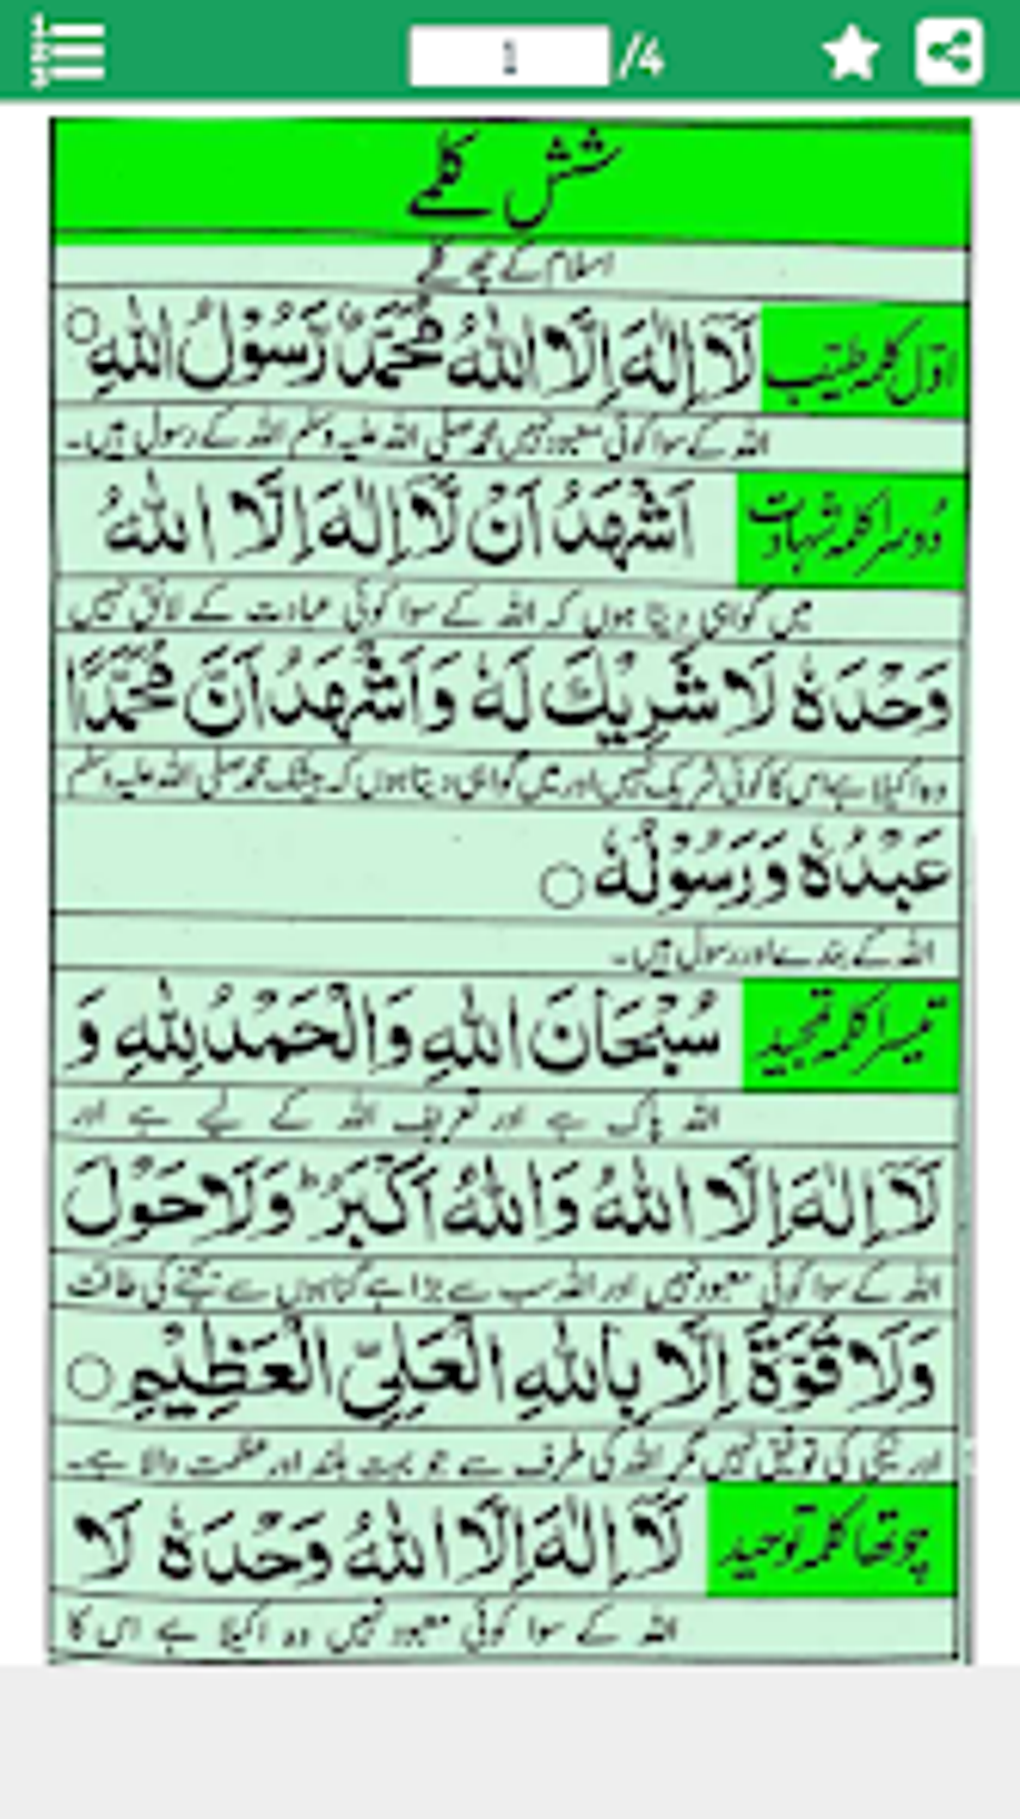 1 /4
شش کلمے
اسلام کے چھ کلمے
اوّل کلمہ طیّب لَآ اِلٰهَ اِلَّا اللّٰهُ مُحَمَّدٌ رَّسُوْلُ اللّٰهِ ○
اللہ کے سوا کوئی معبود نہیں محمد صلی اللہ علیہ وسلم اللہ کے رسول ہیں۔
دُوسرا کلمہ شہادت اَشْهَدُ اَنْ لَّآ اِلٰهَ اِلَّا اللّٰهُ
میں گواہی دیتا ہوں کہ اللہ کے سوا کوئی عبادت کے لائق نہیں
وَحْدَهٗ لَا شَرِيْكَ لَهٗ وَاَشْهَدُ اَنَّ مُحَمَّدًا
وہ اکیلا ہے اس کا کوئی شریک نہیں اور میں گواہی دیتا ہوں کہ بیشک محمد صلی اللہ علیہ وسلم
عَبْدُهٗ وَرَسُوْلُهٗ ○
اللہ کے بندے اور رسول ہیں۔
تیسرا کلمہ تمجید سُبْحَانَ اللّٰهِ وَالْحَمْدُ لِلّٰهِ وَ
اللہ پاک ہے اور تعریف اللہ کے لیے ہے اور
لَآ اِلٰهَ اِلَّا اللّٰهُ وَاللّٰهُ اَكْبَرُ ؕ وَلَا حَوْلَ
اللہ کے سوا کوئی معبود نہیں اور اللہ سب سے بڑا ہے گناہوں سے بچنے کی طاقت
وَلَا قُوَّةَ اِلَّا بِاللّٰهِ الْعَلِيِّ الْعَظِيْمِ ○
اور نیکی کی توفیق نہیں مگر اللہ کی طرف سے جو بہت بلند اور عظمت والا ہے۔
چوتھا کلمہ توحید لَآ اِلٰهَ اِلَّا اللّٰهُ وَحْدَهٗ لَا
اللہ کے سوا کوئی معبود نہیں وہ اکیلا ہے اس کا